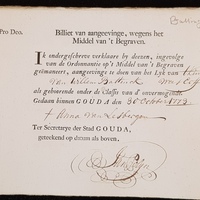 Pro Deo.
Billiet van aangeevinge, wegens het
Middel van 't Begraven.
IK ondergeschreve verklaare by deezen, ingevolge
van de Ordonnantie op 't Middel van 't Begraven
geëmaneert, aangeevinge te doen van het Lyk van
van Willem
als gehoorende onder de Classis van d' onvermogende
Gedaan binnen GOUDA den 30 October
Anna van
Ter Secretarye der Stad GOUDA,
geteekend op datum als boven.